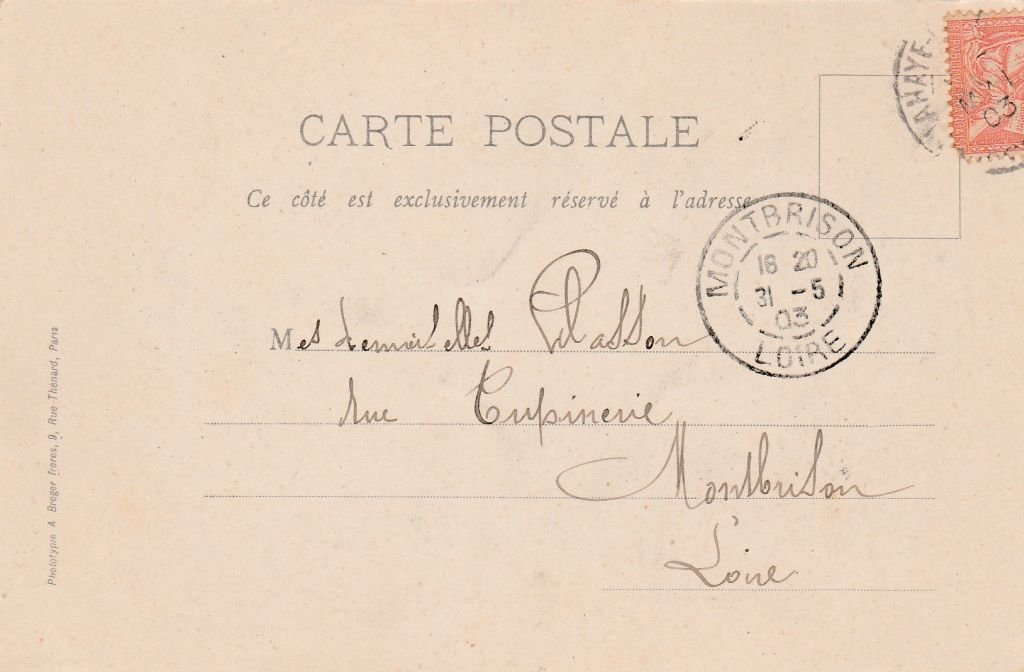 CARTE POSTALE
Ce côté est exclusivement réservé à l'adresse
MONTBRISON
18 20
31 -5
03
LOIRE
Mesdemoiselles Plasson
rue Tupinerie
Montbrison
Loire
Phototypie A Breger frères, 9, Rue Thénard, Paris
MAI
03